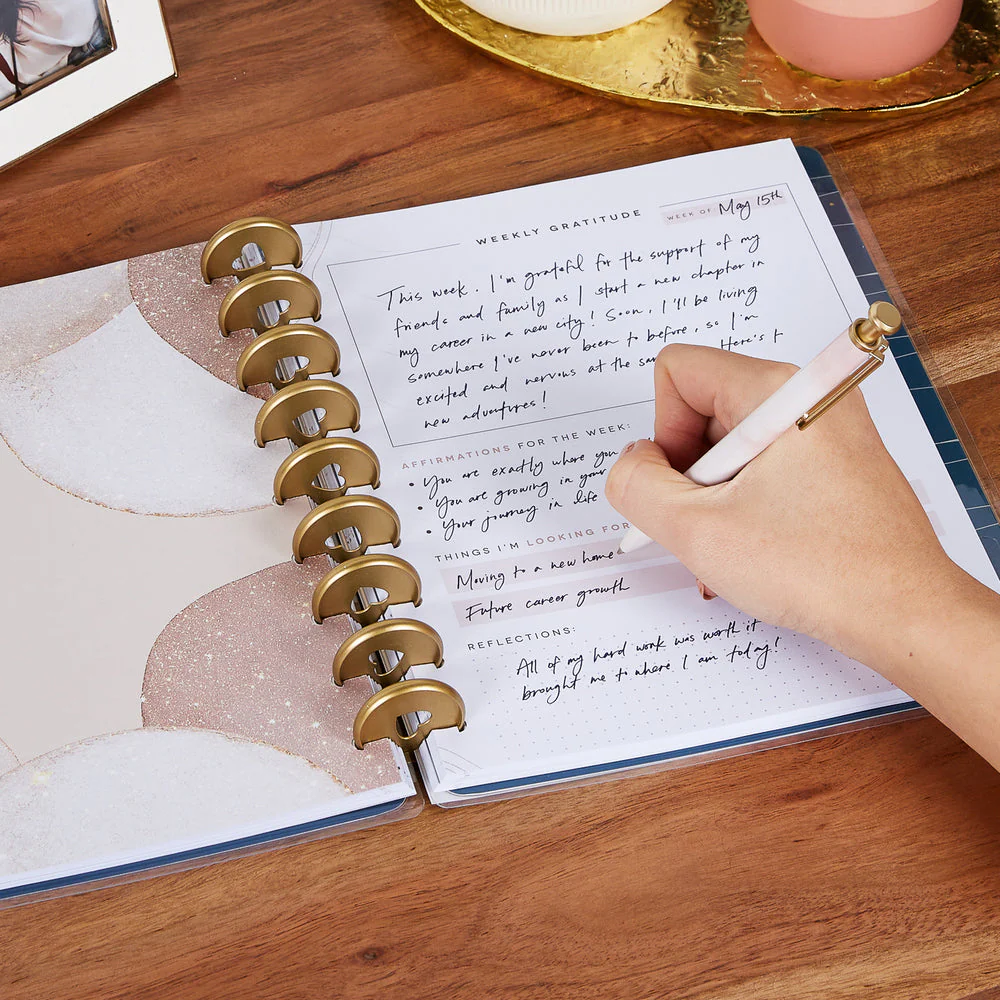 WEEKLY GRATITUDE
WEEK OF May 15th
This week, I'm grateful for the support of my
friends and family as I start a new chapter in
my career in a new city! Soon, I'll be living
somewhere I've never been to before, so I'm
excited and nervous at the Here's t
new adventures!
AFFIRMATIONS FOR THE WEEK:
• You are exactly where you
• You are growing in your
• Your journey in life
THINGS I'M LOOKING FOR
Moving to a new home
Future career growth
REFLECTIONS:
All of my hard work was worth it
brought me to where I am today!